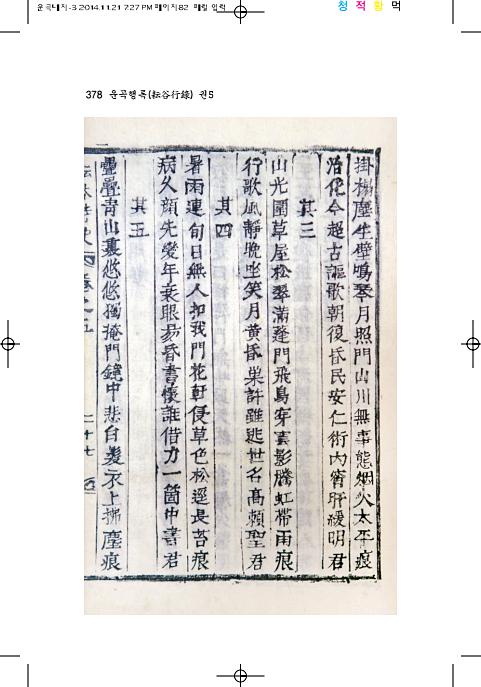 2014.11.21 7:27 PM 페이지82
청 적 황 먹
378 운곡행록(耘谷行錄) 권5
掛榻塵生壁鳴琴月照門山川無事態烟火太平痕
治化今超古謳歌朝復昏民安仁術內宵旰緩明君
其三
山光圍草屋松翠滿蓬門飛鳥穿雲影騰虹帶雨痕
行歌風靜晚坐笑月黃昏巢許雖逃世名高賴聖君
其四
暑雨連旬日無人扣我門花軒侵草色松逕長苔痕
病久顔先變年衰眼易昏書懷誰借力一箇中書君
其五
疊疊青山裏悠悠獨掩門鏡中悲白髮衣上拂塵痕
卷之五 二十七